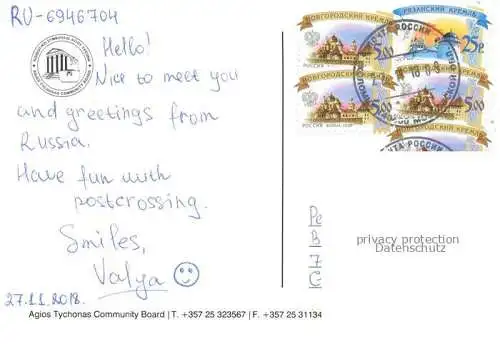 RU-6946704
Hello!
Nice to meet you
and greetings from
Russia.
Have fun with
postcrossing.
Smiles,
Valya
27.11.2018.
Agios Tychonas Community Board | T. +357 25 323567 | F. +357 25 31134
НОВГОРОДСКИЙ КРЕМЛЬ
РОССИЯ
5,00
РЯЗАНСКИЙ КРЕМЛЬ
25р.
НОВГОРОДСКИЙ КРЕМЛЬ
РОССИЯ
5,00
НОВГОРОДСКИЙ КРЕМЛЬ
5,00
НОВГОРОДСКИЙ КРЕМЛЬ
ПОЧТА РОССИИ
privacy protection
Datenschutz